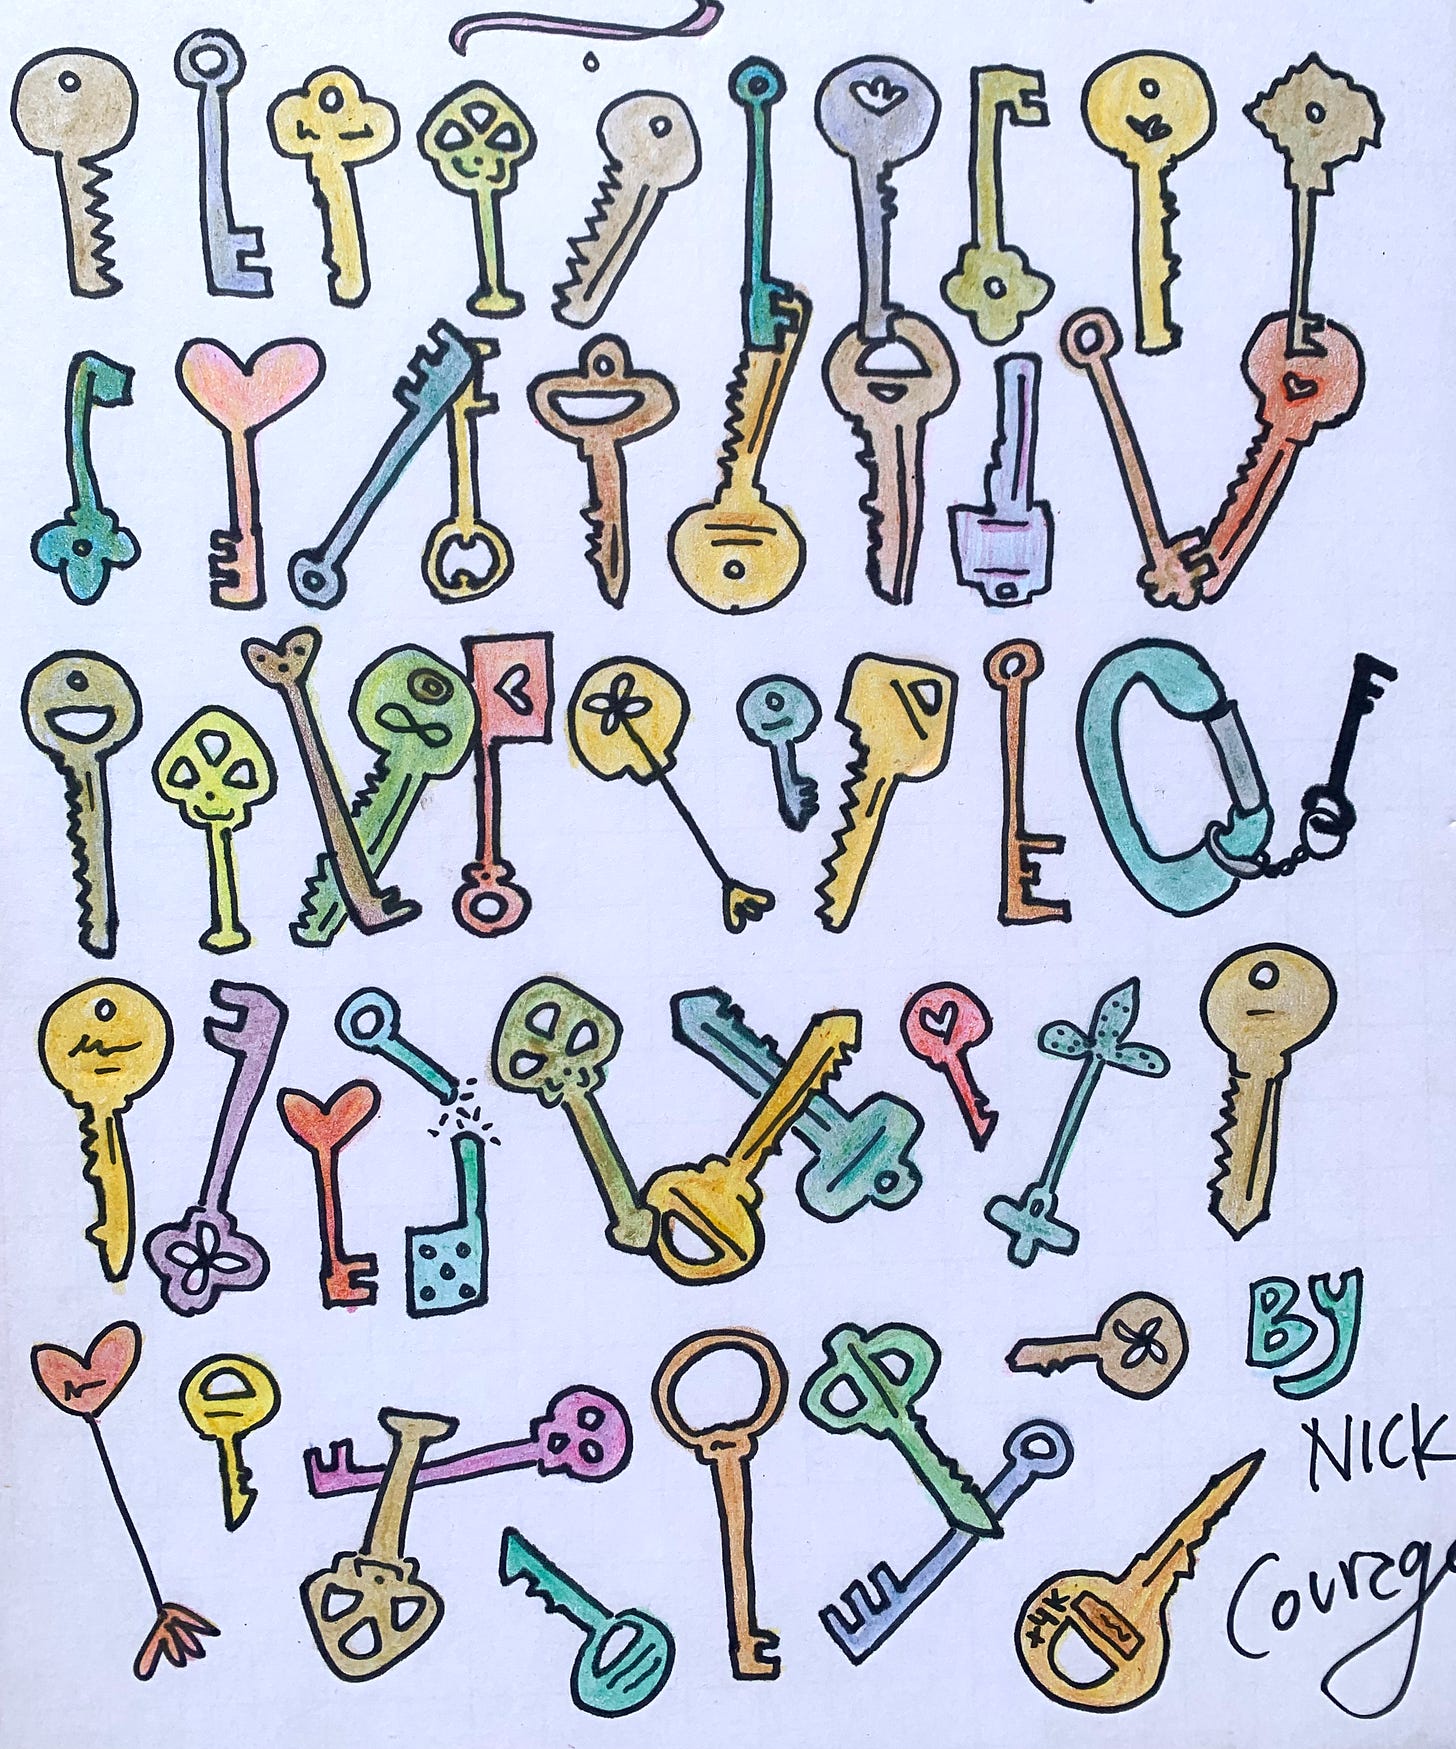 +4K
BY
NICK
Courage